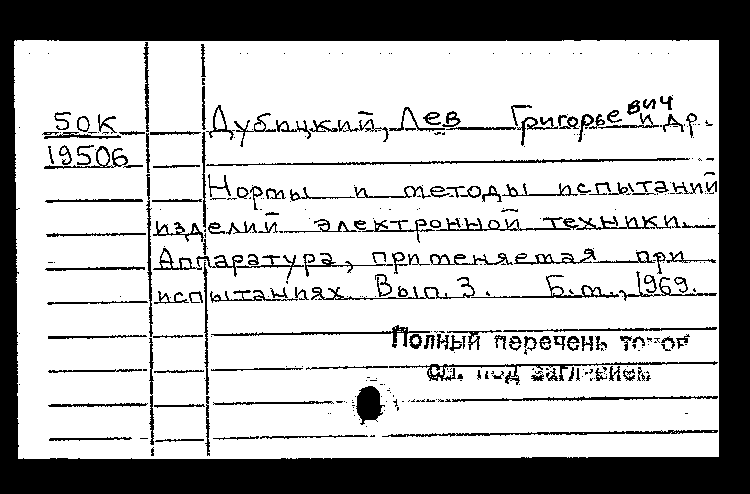 50К
19506
Дубицкий, Лев Григорьевич и др.
Нормы и методы испытаний
изделий электронной техники.
Аппаратура, применяемая при
испытаниях Вып. 3. Б.м., 1969.
Полный перечень томов
см. под заглавием